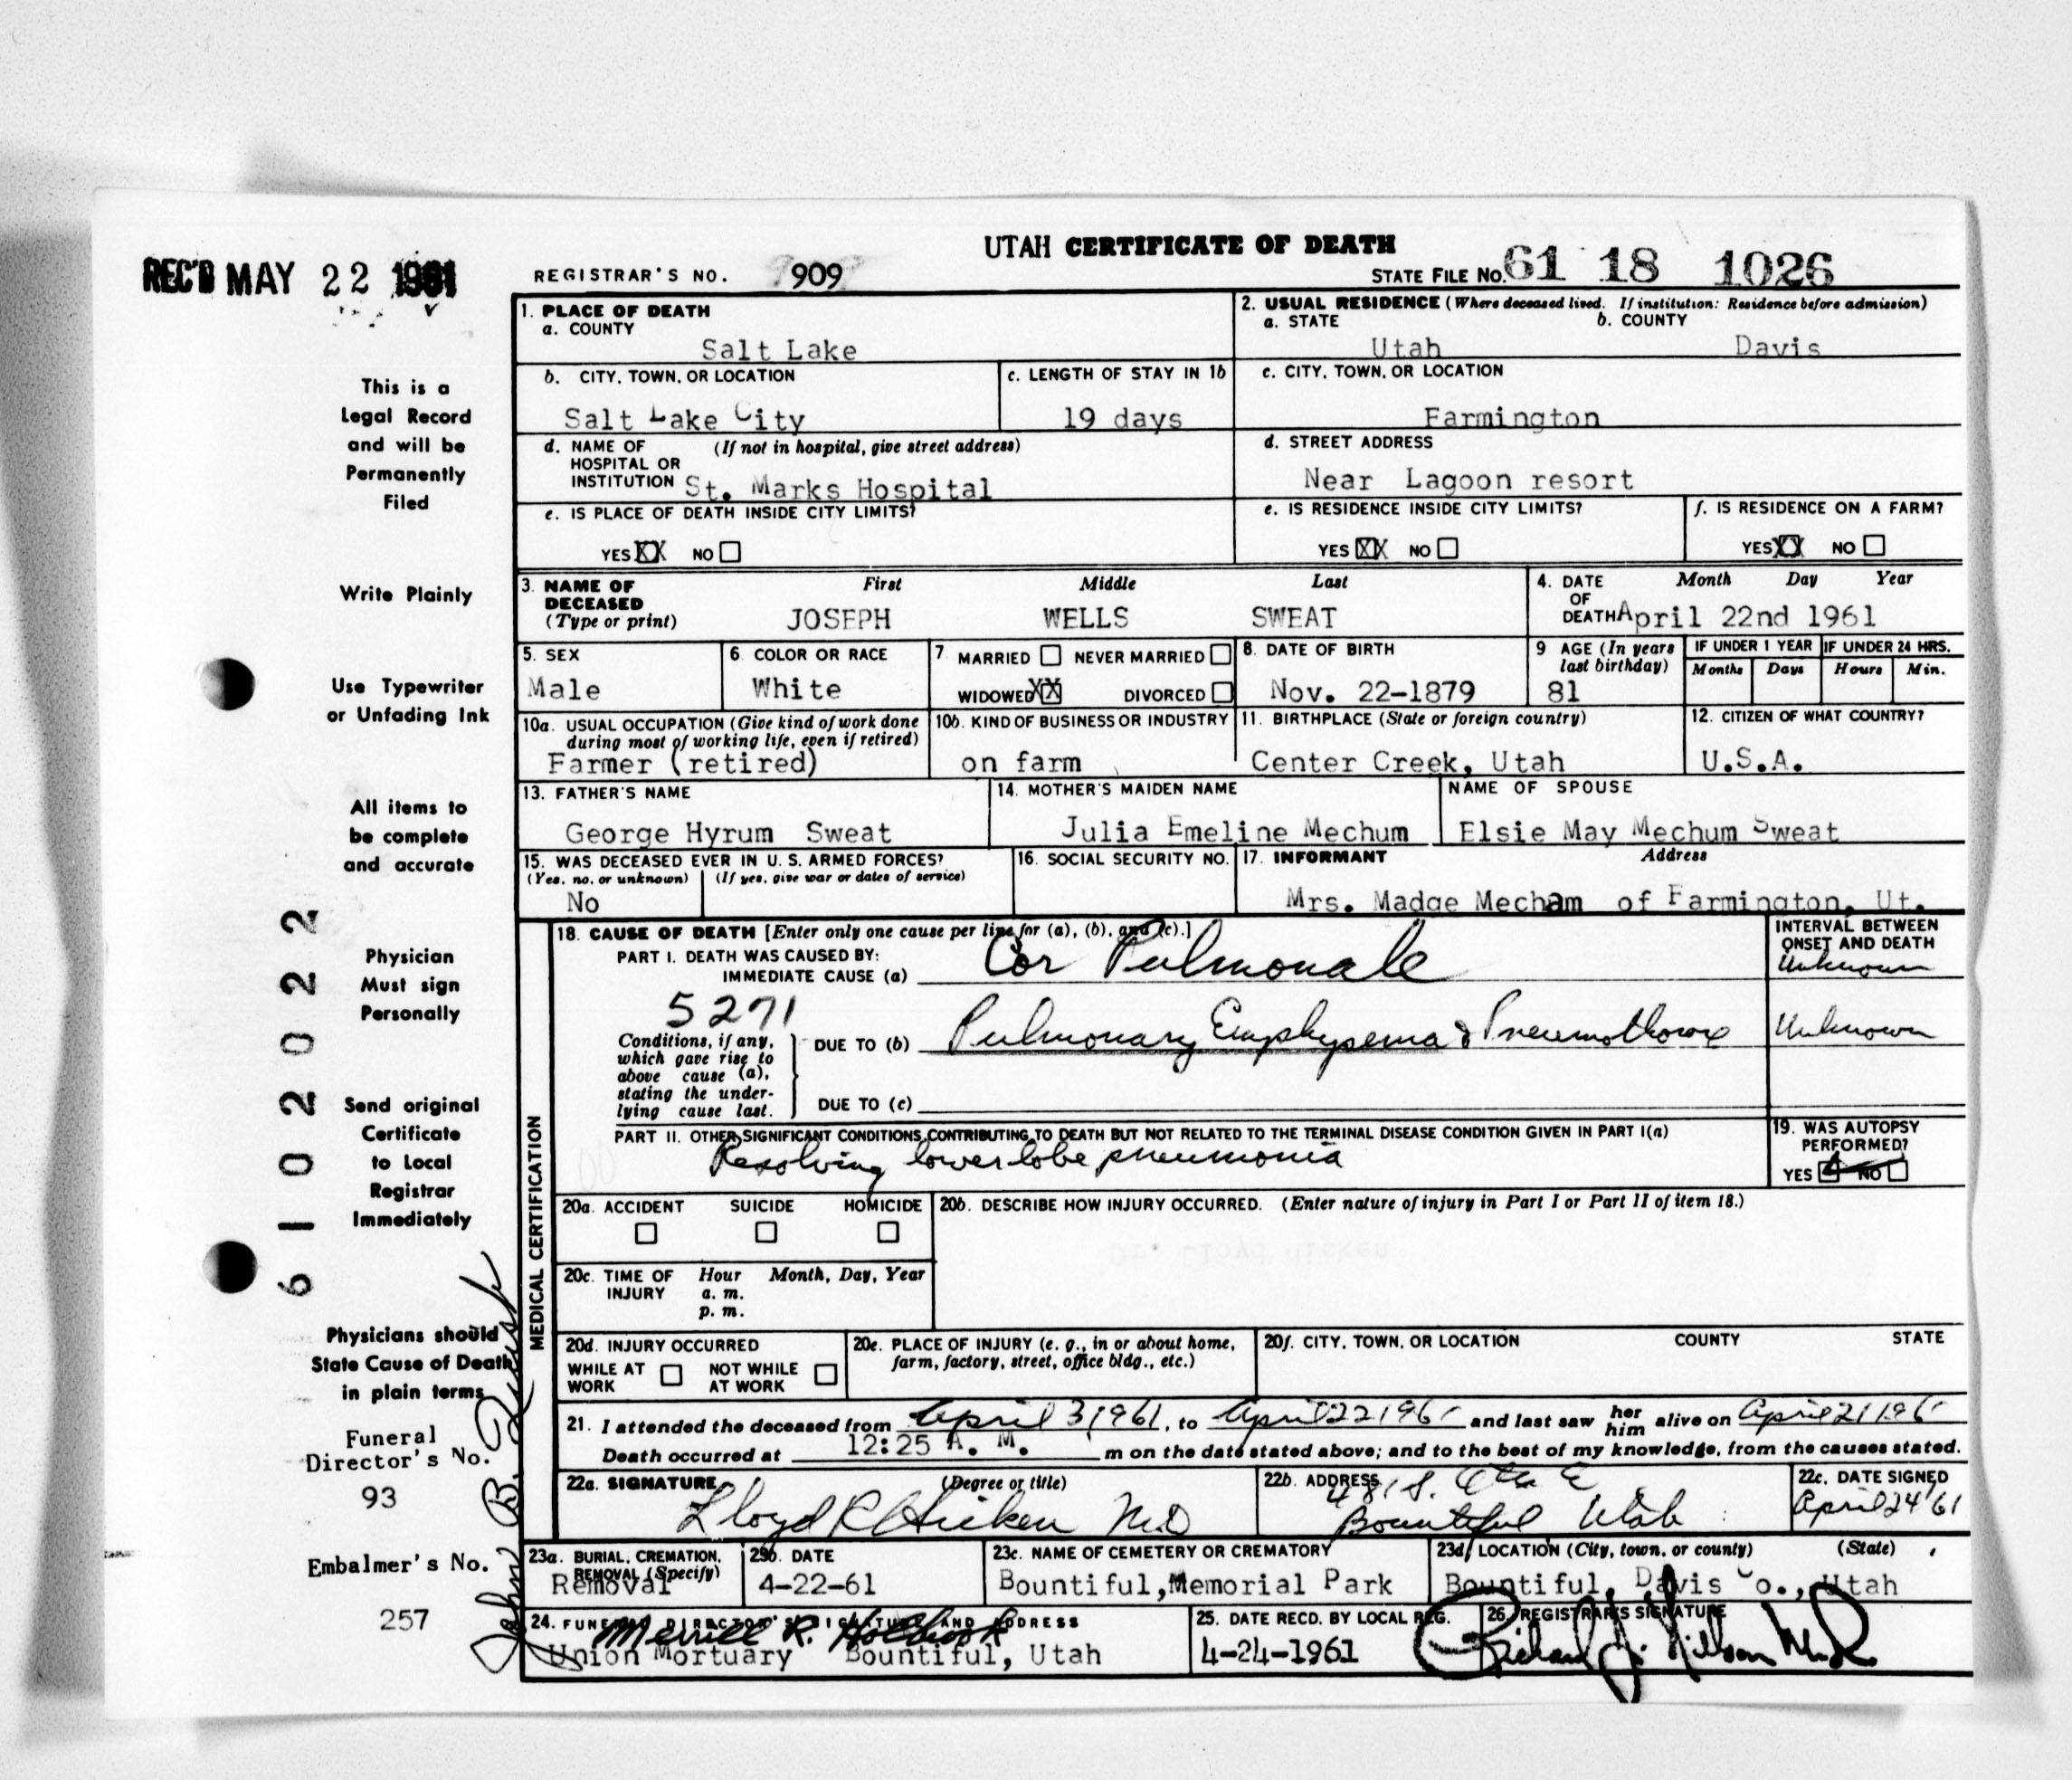 UTAH CERTIFICATE OF DEATH
REC'D MAY 22 1961
REGISTRAR'S NO. 909
STATE FILE NO. 61 18 1026
1. PLACE OF DEATH
a. COUNTY
Salt Lake
2. USUAL RESIDENCE (Where deceased lived. If institution: Residence before admission)
a. STATE b. COUNTY
Utah Davis
b. CITY, TOWN, OR LOCATION
Salt Lake City
c. LENGTH OF STAY IN 1b
19 days
c. CITY, TOWN, OR LOCATION
Farmington
d. NAME OF (If not in hospital, give street address)
HOSPITAL OR
INSTITUTION St. Marks Hospital
d. STREET ADDRESS
Near Lagoon resort
e. IS PLACE OF DEATH INSIDE CITY LIMITS?
YES XX NO
e. IS RESIDENCE INSIDE CITY LIMITS?
YES XX NO
f. IS RESIDENCE ON A FARM?
YES XX NO
3. NAME OF DECEASED (Type or print)
First Middle Last
JOSEPH WELLS SWEAT
4. DATE OF DEATH Month Day Year
April 22nd 1961
5. SEX
Male
6. COLOR OR RACE
White
7. MARRIED NEVER MARRIED
WIDOWED XX DIVORCED
8. DATE OF BIRTH
Nov. 22-1879
9 AGE (In years last birthday)
81
IF UNDER 1 YEAR IF UNDER 24 HRS.
Months Days Hours Min.
10a. USUAL OCCUPATION (Give kind of work done
during most of working life, even if retired)
Farmer (retired)
10b. KIND OF BUSINESS OR INDUSTRY
on farm
11. BIRTHPLACE (State or foreign country)
Center Creek, Utah
12. CITIZEN OF WHAT COUNTRY?
U.S.A.
13. FATHER'S NAME
George Hyrum Sweat
14. MOTHER'S MAIDEN NAME
Julia Emeline Mechum
NAME OF SPOUSE
Elsie May Mechum Sweat
15. WAS DECEASED EVER IN U. S. ARMED FORCES?
(Yes, no, or unknown) (If yes, give war or dates of service)
No
16. SOCIAL SECURITY NO.
17. INFORMANT Address
Mrs. Madge Mecham of Farmington, Ut.
MEDICAL CERTIFICATION
18. CAUSE OF DEATH [Enter only one cause per line for (a), (b), and (c).]
PART I. DEATH WAS CAUSED BY:
IMMEDIATE CAUSE (a) Cor Pulmonale
INTERVAL BETWEEN
ONSET AND DEATH
Unknown
5271
Conditions, if any,
which gave rise to
above cause (a),
stating the under-
lying cause last.
DUE TO (b) Pulmonary Emphysema & Pneumothorax
Unknown
DUE TO (c)
PART II. OTHER SIGNIFICANT CONDITIONS CONTRIBUTING TO DEATH BUT NOT RELATED TO THE TERMINAL DISEASE CONDITION GIVEN IN PART I(a)
Resolving lower lobe pneumonia
19. WAS AUTOPSY
PERFORMED?
YES NO
20a. ACCIDENT SUICIDE HOMICIDE
20b. DESCRIBE HOW INJURY OCCURRED. (Enter nature of injury in Part I or Part II of item 18.)
20c. TIME OF INJURY Hour Month, Day, Year
a. m.
p. m.
20d. INJURY OCCURRED
WHILE AT WORK NOT WHILE AT WORK
20e. PLACE OF INJURY (e. g., in or about home,
farm, factory, street, office bldg., etc.)
20f. CITY, TOWN, OR LOCATION COUNTY STATE
21. I attended the deceased from April 3, 1961, to April 22 1961 and last saw her him alive on April 21 1961
Death occurred at 12:25 A. M. m on the date stated above; and to the best of my knowledge, from the causes stated.
22a. SIGNATURE (Degree or title)
Lloyd R Hicken M.D
22b. ADDRESS
Bountiful Utah
22c. DATE SIGNED
April 24 '61
23a. BURIAL, CREMATION,
REMOVAL (Specify)
Removal
23b. DATE
4-22-61
23c. NAME OF CEMETERY OR CREMATORY
Bountiful, Memorial Park
23d. LOCATION (City, town, or county) (State)
Bountiful, Davis Co., Utah
24. FUNERAL DIRECTOR'S SIGNATURE AND ADDRESS
Merrill R. Holbrook
Union Mortuary Bountiful, Utah
25. DATE RECD. BY LOCAL REG.
4-24-1961
26. REGISTRAR'S SIGNATURE
This is a
Legal Record
and will be
Permanently
Filed
Write Plainly
Use Typewriter
or Unfading Ink
All items to
be complete
and accurate
Physician
Must sign
Personally
Send original
Certificate
to Local
Registrar
Immediately
Physicians should
State Cause of Death
in plain terms
Funeral
Director's No.
93
Embalmer's No.
257
61 02022
John B.